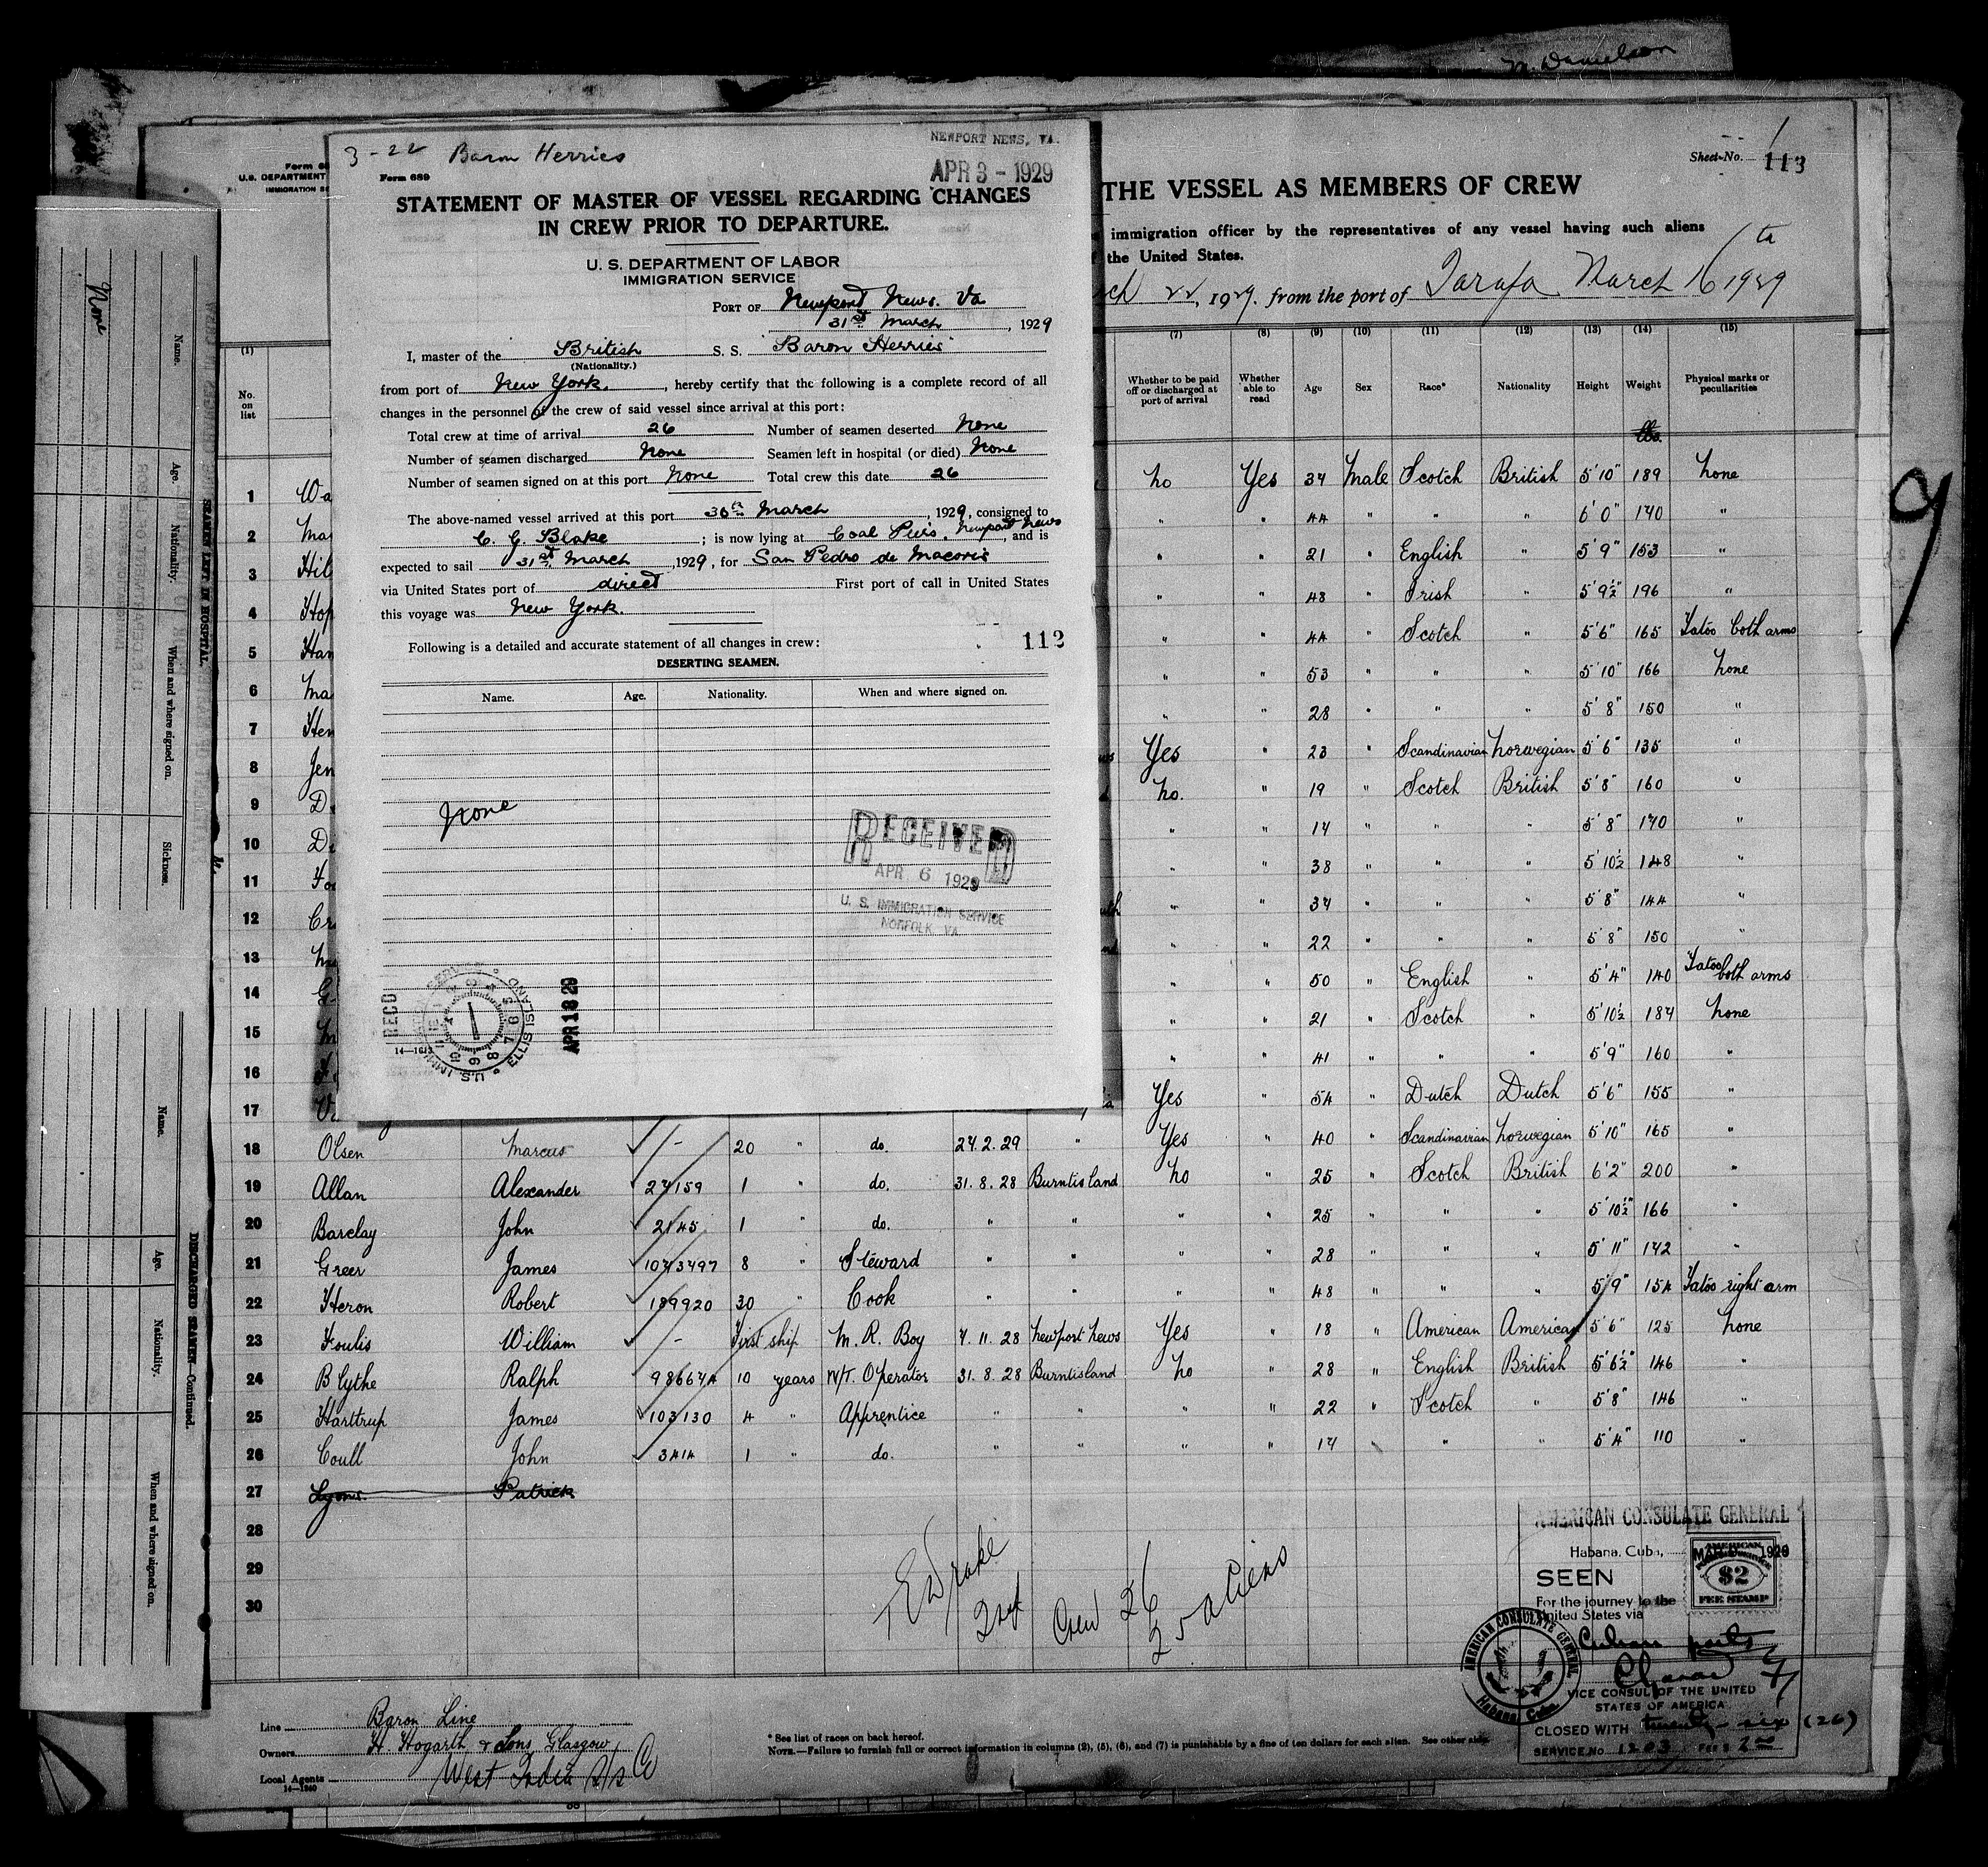 M. Danielson
3-22 Baron Herries
NEWPORT NEWS, VA.
APR 3 - 1929
Form 689
STATEMENT OF MASTER OF VESSEL REGARDING CHANGES
IN CREW PRIOR TO DEPARTURE.
U. S. DEPARTMENT OF LABOR
IMMIGRATION SERVICE
PORT OF Newport News. Va
31st March, 1929
I, master of the British S. S. "Baron Herries"
(Nationality.)
from port of New York., hereby certify that the following is a complete record of all
changes in the personnel of the crew of said vessel since arrival at this port:
Total crew at time of arrival 26 Number of seamen deserted None
Number of seamen discharged None Seamen left in hospital (or died) None
Number of seamen signed on at this port None Total crew this date 26
The above-named vessel arrived at this port 30th March, 1929, consigned to
C. G. Blake; is now lying at Coal Piers, Newport News, and is
expected to sail 31st March, 1929, for San Pedro de Macoris
via United States port of direct First port of call in United States
this voyage was New York.
Following is a detailed and accurate statement of all changes in crew:
112
DESERTING SEAMEN.
Name. Age. Nationality. When and where signed on.
None
RECEIVED
APR 6 1929
U. S. IMMIGRATION SERVICE
NORFOLK VA
REC'D
U.S. IMMI ELLIS ISLAND
APR 18 29
Sheet No. 1
113
THE VESSEL AS MEMBERS OF CREW
immigration officer by the representatives of any vessel having such aliens
the United States.
22, 1929, from the port of Tarafa March 16th 1929
(1) (7) (8) (9) (10) (11) (12) (13) (14) (15)
No. on list Whether to be paid off or discharged at port of arrival Whether able to read Age Sex Race* Nationality Height Weight Physical marks or peculiarities
lbs.
1 Wa No Yes 34 Male Scotch British 5'10" 189 None
2 Ma " " 44 " " " 6'0" 170 "
3 Hil " " 21 " English " 5'9" 153 "
4 Hop " " 48 " Irish " 5'9½ 196 "
5 Han " " 44 " Scotch " 5'6" 165 Tatoo both arms
6 Ma " " 53 " " " 5'10" 166 None
7 Hen " " 28 " " " 5'8" 150 "
8 Jen Yes " 23 " Scandinavian Norwegian 5'6" 135 "
9 D No. " 19 " Scotch British 5'8" 160 "
10 D " " 17 " " " 5'8" 170 "
11 Fo " " 38 " " " 5'10½ 148 "
12 Cr " " 37 " " " 5'8" 144 "
13 " " 22 " " " 5'8" 150 "
14 G " " 50 " English " 5'4" 140 Tatoo both arms
15 " " 21 " Scotch " 5'10½ 187 None
16 " " 41 " " " 5'9" 160 "
17 Yes " 54 " Dutch Dutch 5'6" 155 "
18 Olsen Marcus - 20 " do. 27.2.29 " Yes " 40 " Scandinavian Norwegian 5'10" 165 "
19 Allan Alexander 27159 1 " do. 31.8.28 Burntisland No " 25 " Scotch British 6'2" 200 "
20 Barclay John 2145 1 " do. " " " " 25 " " " 5'10½" 166 "
21 Greer James 1043497 8 " Steward " " " " 28 " " " 5'11" 172 "
22 Heron Robert 189920 30 " Cook " " " " 48 " " " 5'9" 154 Tatoo right arm
23 Foulis William - First ship M. R. Boy 7.11.28 Newport News Yes " 18 " American American 5'6" 125 None
24 Blythe Ralph 986674 10 years W/T. Operator 31.8.28 Burntisland No " 28 " English British 5'6½" 146 "
25 Harttrup James 103130 4 " Apprentice " " " " 22 " Scotch " 5'8" 146 "
26 Coull John 3414 1 " do. " " " " 17 " " " 5'4" 110 "
27 Lyons Patrick
28
29
30
Crew 26
25 aliens
AMERICAN CONSULATE GENERAL
Habana, Cuba, MAR 1929
SEEN
For the journey to the
United States via
Cuban ports
AMERICAN
$2
FEE STAMP
AMERICAN CONSULATE GENERAL
Habana, Cuba
VICE CONSUL OF THE UNITED
STATES OF AMERICA
CLOSED WITH twenty-six (26)
SERVICE NO. 1203 FEE $ 2.00
Line Baron Line
Owners H. Hogarth & Sons Glasgow
Local Agents West India S/S Co
14—1240
* See list of races on back hereof.
NOTE.—Failure to furnish full or correct information in columns (2), (5), (6), and (7) is punishable by a fine of ten dollars for each alien. See other side.
9
None
Name. Age. Nationality. When and where signed on. Sickness.
SEAMEN LEFT IN HOSPITAL.
Name. Age. Nationality. When and where signed on.
DISCHARGED SEAMEN—Continued.